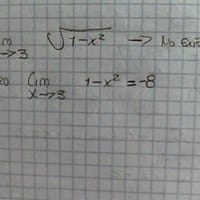 lim x→3 √(1-x²) → No exi
lim x→3 1-x² = -8